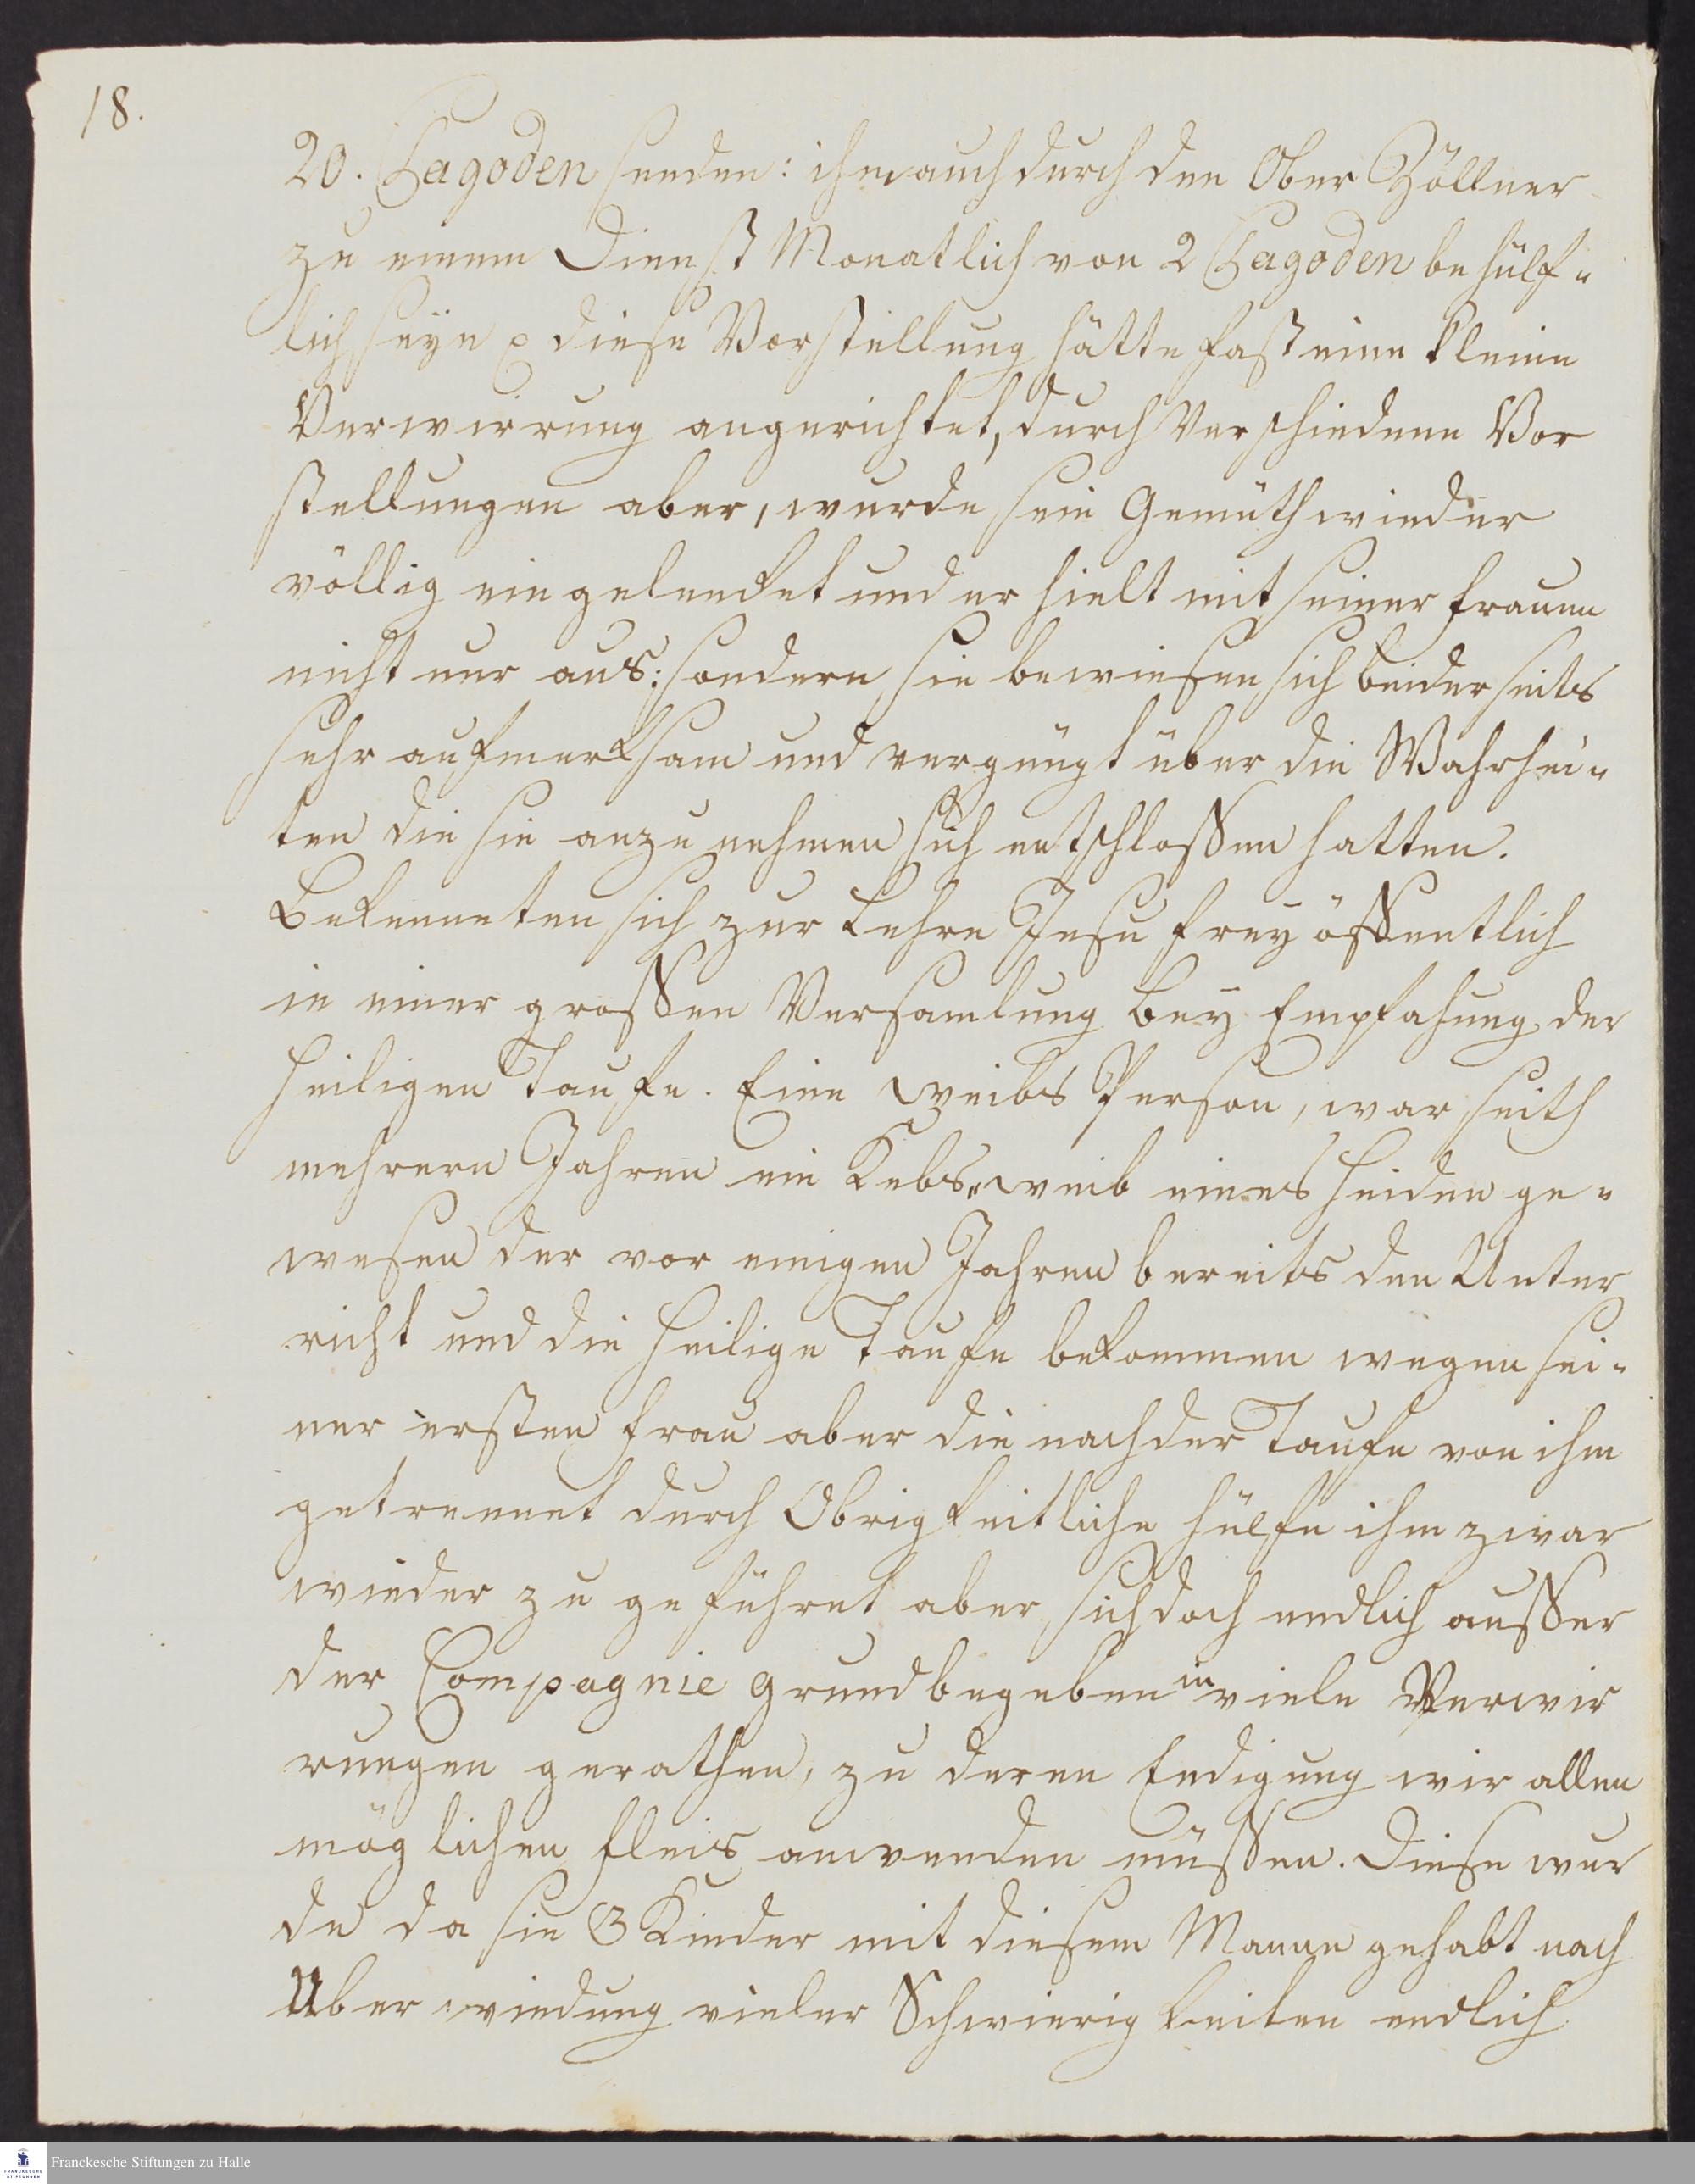 18.
20. Pagoden senden: ihm auch durch den Ober Zöllner
zu einem Dienst Monatlich von 2 Pagoden behülf„
lich seÿn p diese Vorstellung hätte fast eine kleine
Verwirrung angerichtet, durch Verschiedene Vor
stellungen aber, wurde sein Gemüth wieder
völlig eingelenket und er hielt mit seiner frauen
nicht nur aus: sondern sie bewiesen sich beiderseits
sehr aufmerksam und vergnügt über die Wahrhei„
ten die sie anzu nehmen sich entschloßen hatten.
Bekenneten sich zur Lehre Jesu freÿ öffentlich
in einer großen Versamlung beÿ Empfahung der
heiligen Taufe. Eine Weibs Person, war seith
mehrern Jahren ein Kebs„weib eines Heiden ge„
wesen der vor einigen Jahren bereits den Unter
richt und die heilige Taufe bekommen wegen sei„
ner ersten frau aber die nach der Taufe von ihm
getrennet durch Obrigkeitliche hülfe ihm zwar
wieder zu geführet aber sich doch endlich außer
der Compagnie Grund begeben in viele Verwir
rungen gerathen, zu deren Endigung wir allen
möglichen fleis anwenden müßen. Diese wur
de da sie 3 Kinder mit diesem Manne gehabt nach
Uber windung vieler Schwierigkeiten endlich
Franckesche Stiftungen zu Halle
FRANCKESCHE
STIFTUNGEN